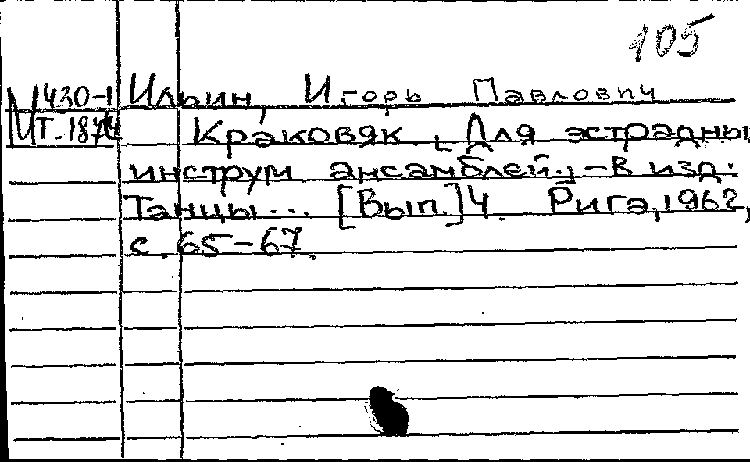 105
М 430-1 Ильин, Игорь Павлович
МТ-187 Краковяк. Для эстрадны
инструм ансамблей. - В изд.
Танцы... [Вып.] 4. Рига, 1962,
с. 65-67.